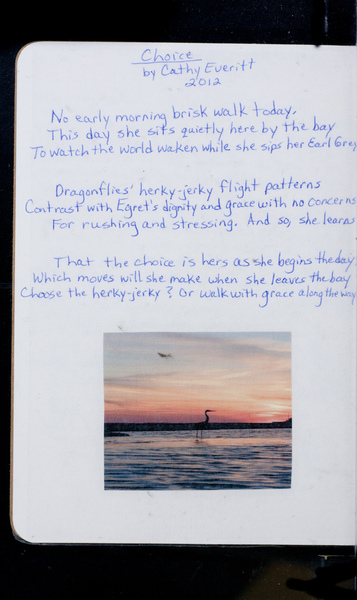 Choice
by Cathy Everitt
2012
No early morning brisk walk today.
This day she sits quietly here by the bay
To watch the world waken while she sips her Earl Grey
Dragonflies' herky-jerky flight patterns
Contrast with Egret's dignity and grace with no concerns
For rushing and stressing. And so, she learns
That the choice is hers as she begins the day
Which moves will she make when she leaves the bay
Choose the herky-jerky? Or walk with grace along the way